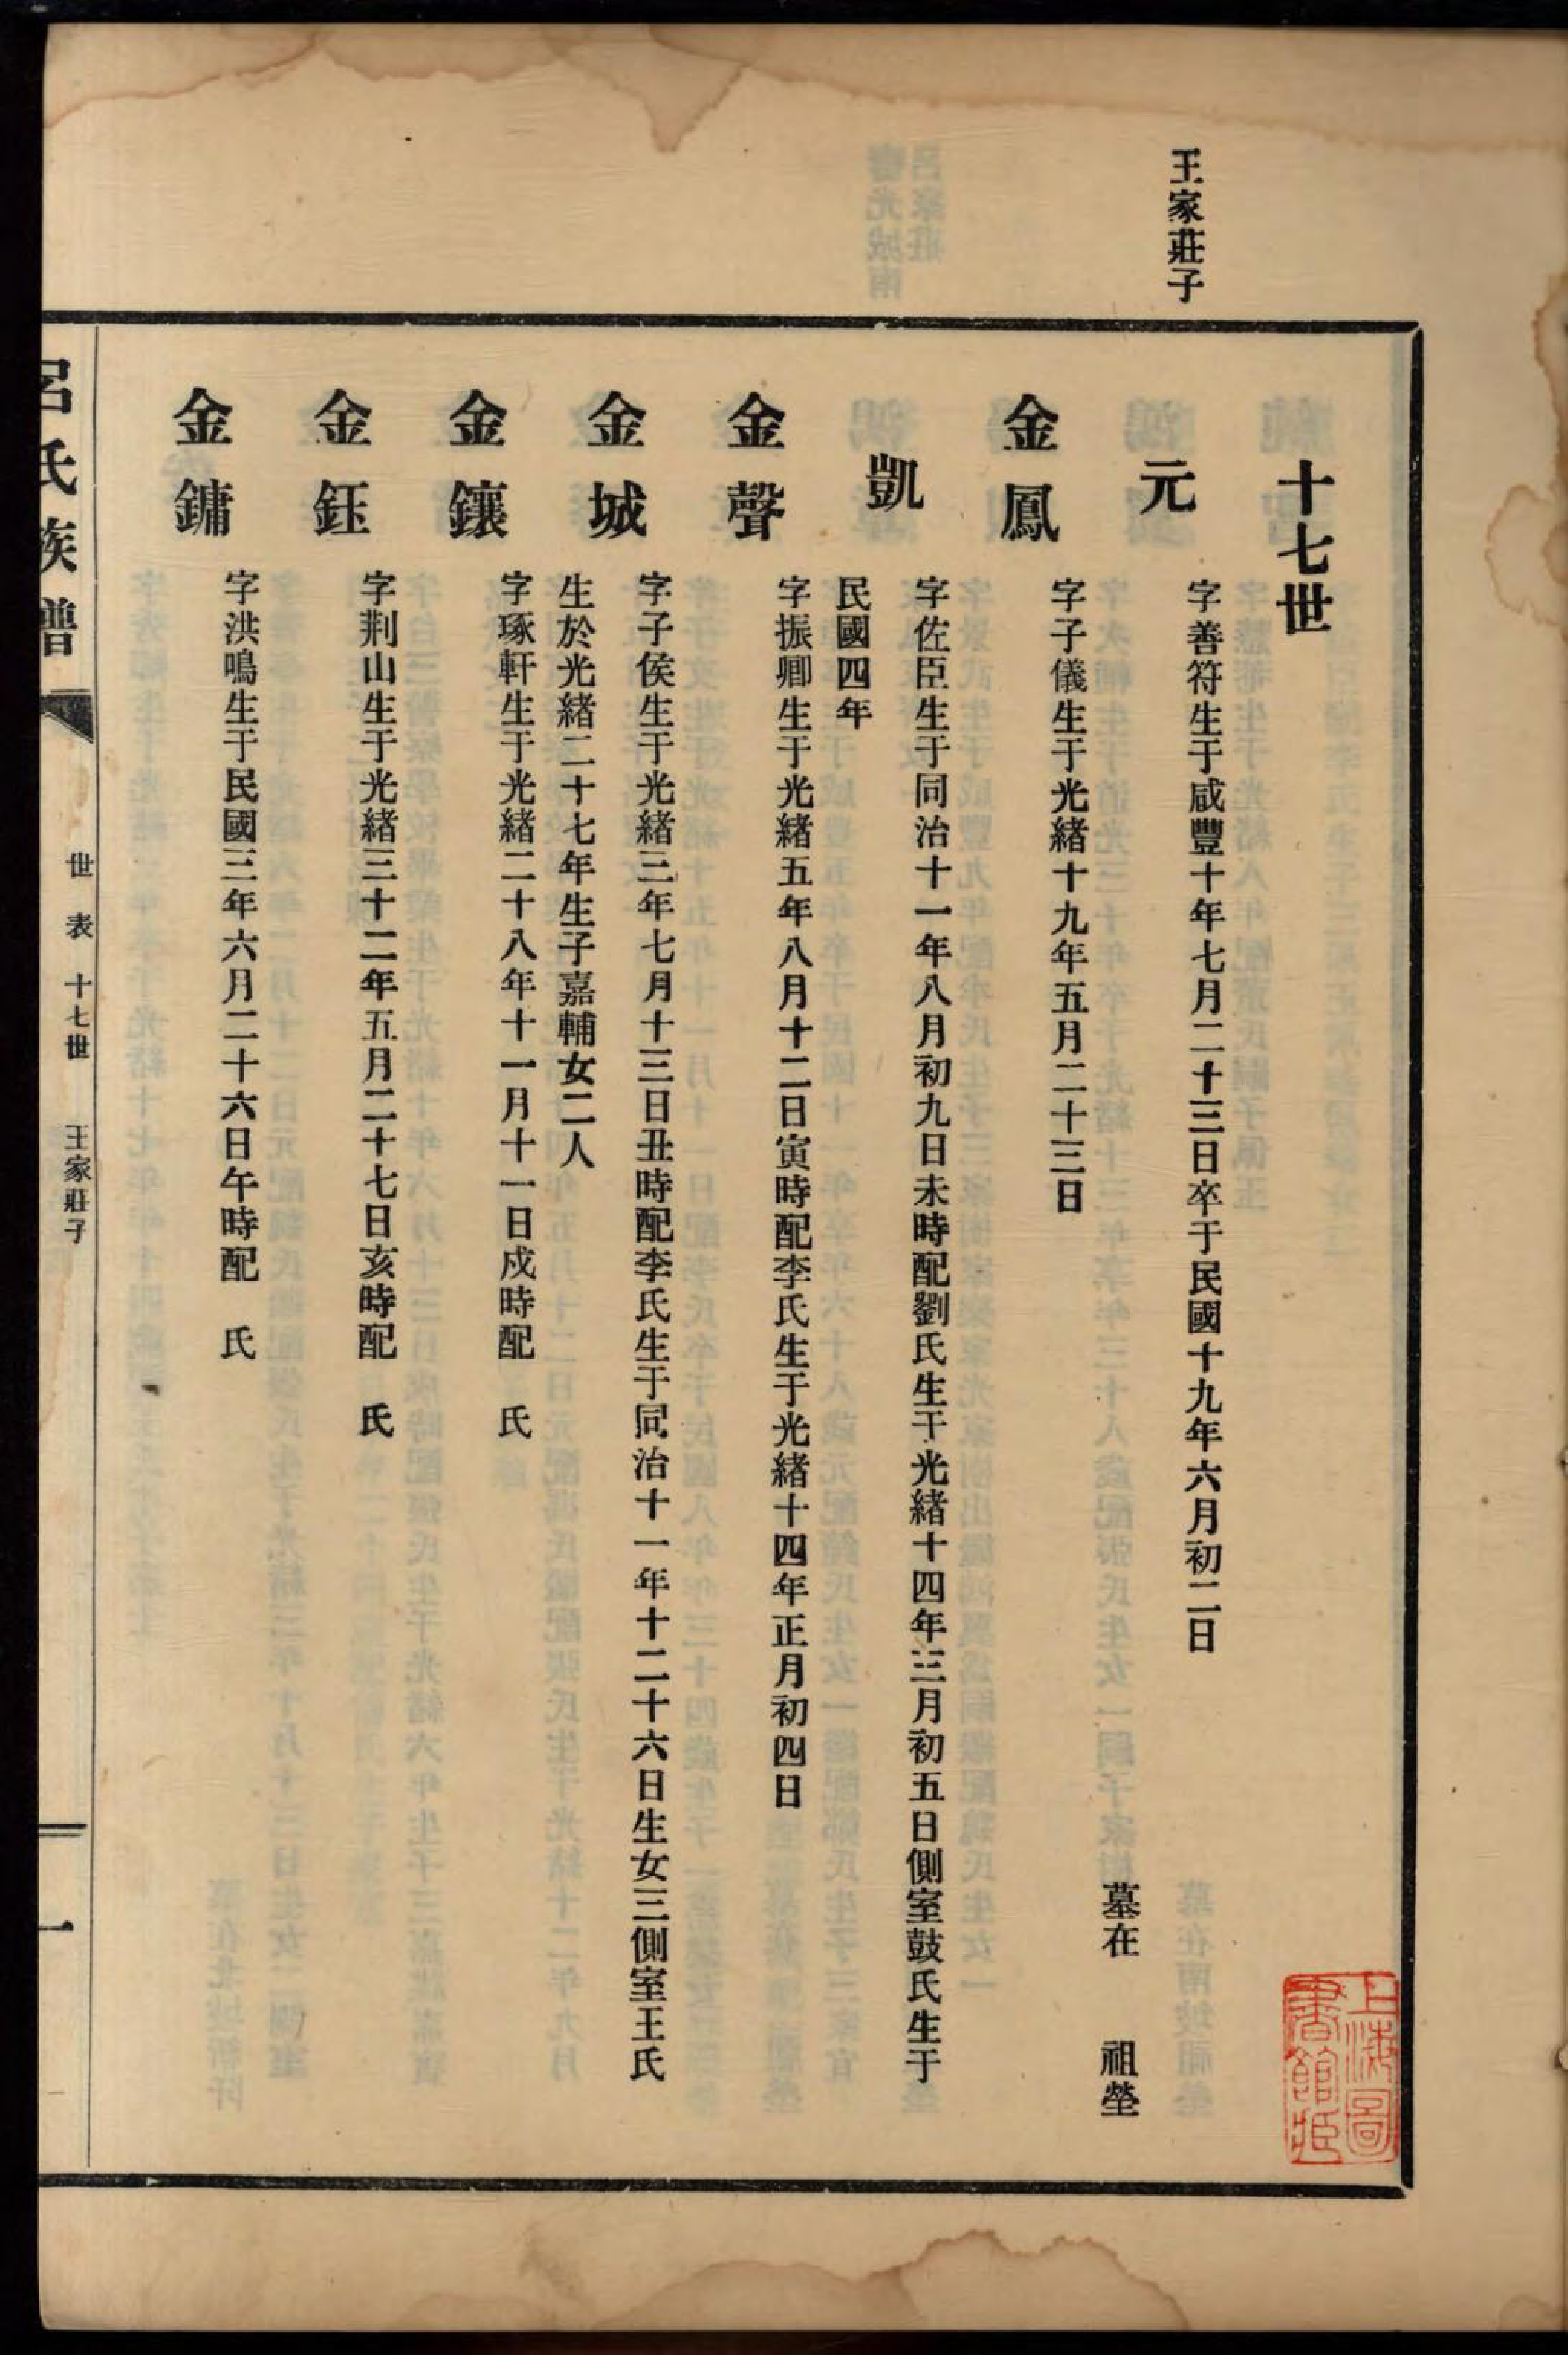 王家莊子
十七世
元
字善符生于咸豐十年七月二十三日卒于民國十九年六月初二日
墓在　祖塋
金鳳
字子儀生于光緒十九年五月二十三日
凱
字佐臣生于同治十一年八月初九日未時配劉氏生于光緒十四年三月初五日側室鼓氏生于
民國四年
金聲
字振卿生于光緒五年八月十二日寅時配李氏生于光緒十四年正月初四日
金城
字子侯生于光緒三年七月十三日丑時配李氏生于同治十一年十二十六日生女三側室王氏
生於光緒二十七年生子嘉輔女二人
金鑲
字琢軒生于光緒二十八年十一月十一日戍時配　氏
金鈺
字荆山生于光緒三十二年五月二十七日亥時配　氏
金鏞
字洪鳴生于民國三年六月二十六日午時配　氏
呂氏族譜
世表　十七世　王家莊子
一
上海圖書館藏